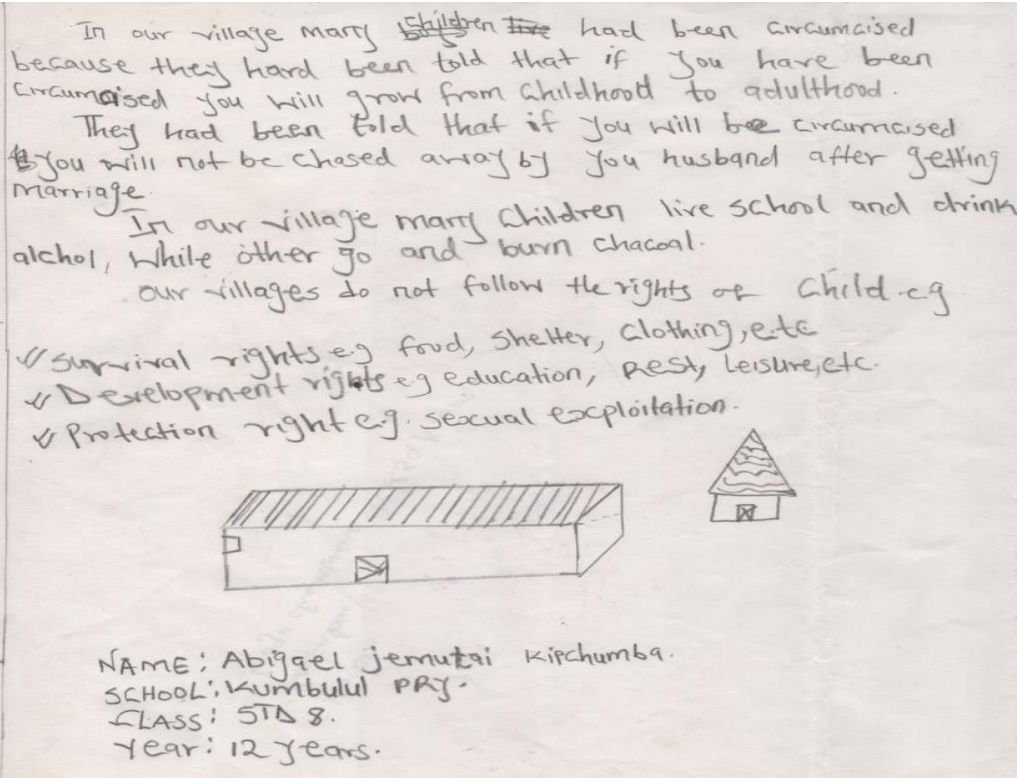 In our village many children had been circumcised
because they hard been told that if you have been
circumcised you will grow from childhood to adulthood.
They had been told that if you will be circumcised
you will not be chased away by you husband after getting
marriage.
In our village many children live school and drink
alchol, while other go and burn chacoal.
our villages do not follow the rights of child e.g
✓ Survival rights e.g food, shelter, clothing, e.t.c
✓ Development rights eg education, Rest, leisure, etc.
✓ Protection right e.g. sexual exploitation.
NAME: Abigael jemutai Kipchumba.
SCHOOL: Kumbulul PRY.
CLASS: STD 8.
Year: 12 years.